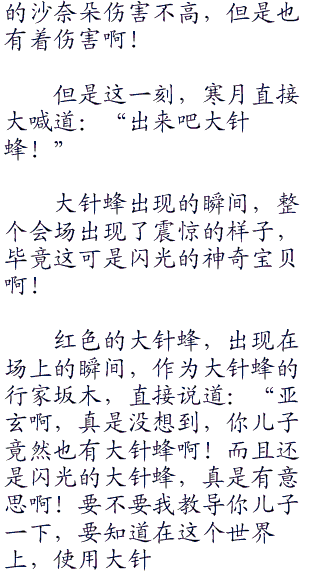 的沙奈朵伤害不高，但是也
有着伤害啊！
但是这一刻，寒月直接
大喊道：“出来吧大针
蜂！”
大针蜂出现的瞬间，整
个会场出现了震惊的样子，
毕竟这可是闪光的神奇宝贝
啊！
红色的大针蜂，出现在
场上的瞬间，作为大针蜂的
行家坂木，直接说道：“亚
玄啊，真是没想到，你儿子
竟然也有大针蜂啊！而且还
是闪光的大针蜂，真是有意
思啊！要不要我教导你儿子
一下，要知道在这个世界
上，使用大针